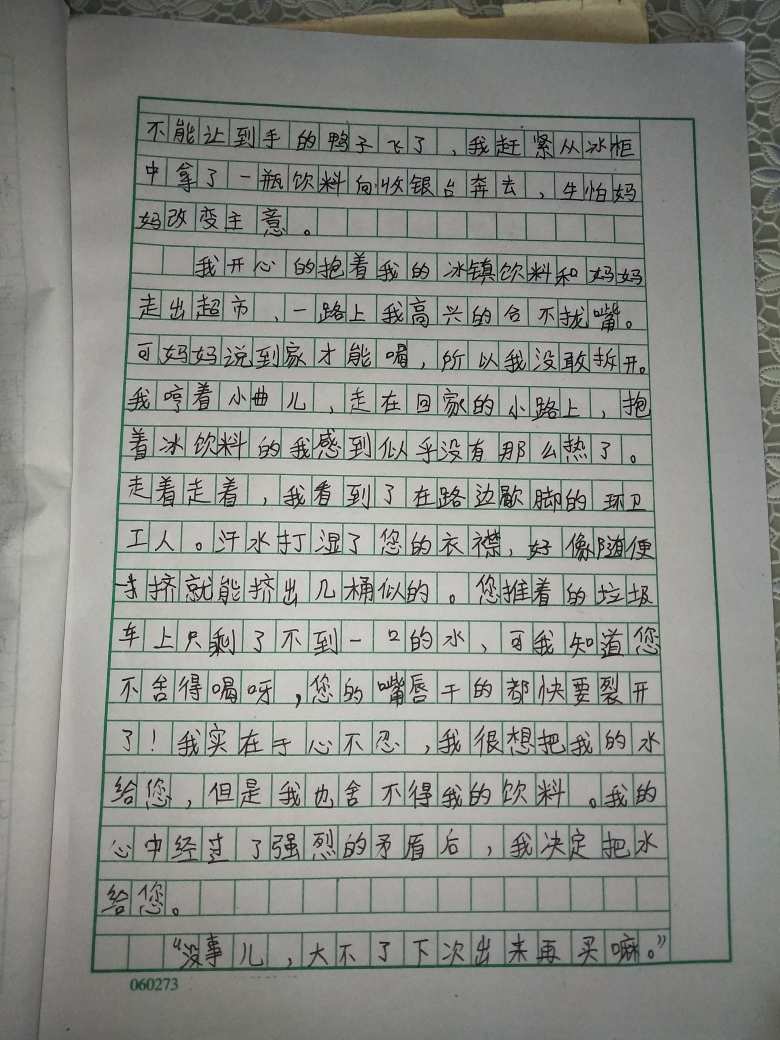 不能让到手的鸭子飞了，我赶紧从冰柜
中拿了一瓶饮料向收银台奔去，生怕妈
妈改变主意。
我开心的抱着我的冰镇饮料和妈妈
走出超市，一路上我高兴的合不拢嘴。
可妈妈说到家才能喝，所以我没敢拆开。
我哼着小曲儿，走在回家的小路上，抱
着冰饮料的我感到似乎没有那么热了。
走着走着，我看到了在路边歇脚的环卫
工人。汗水打湿了您的衣襟，好像随便
一挤就能挤出几桶似的。您推着的垃圾
车上只剩了不到一口的水，可我知道您
不舍得喝呀，您的嘴唇干的都快要裂开
了！我实在于心不忍，我很想把我的水
给您，但是我也舍不得我的饮料。我的
心中经过了强烈的矛盾后，我决定把水
给您。
“没事儿，大不了下次出来再买嘛。”
060273